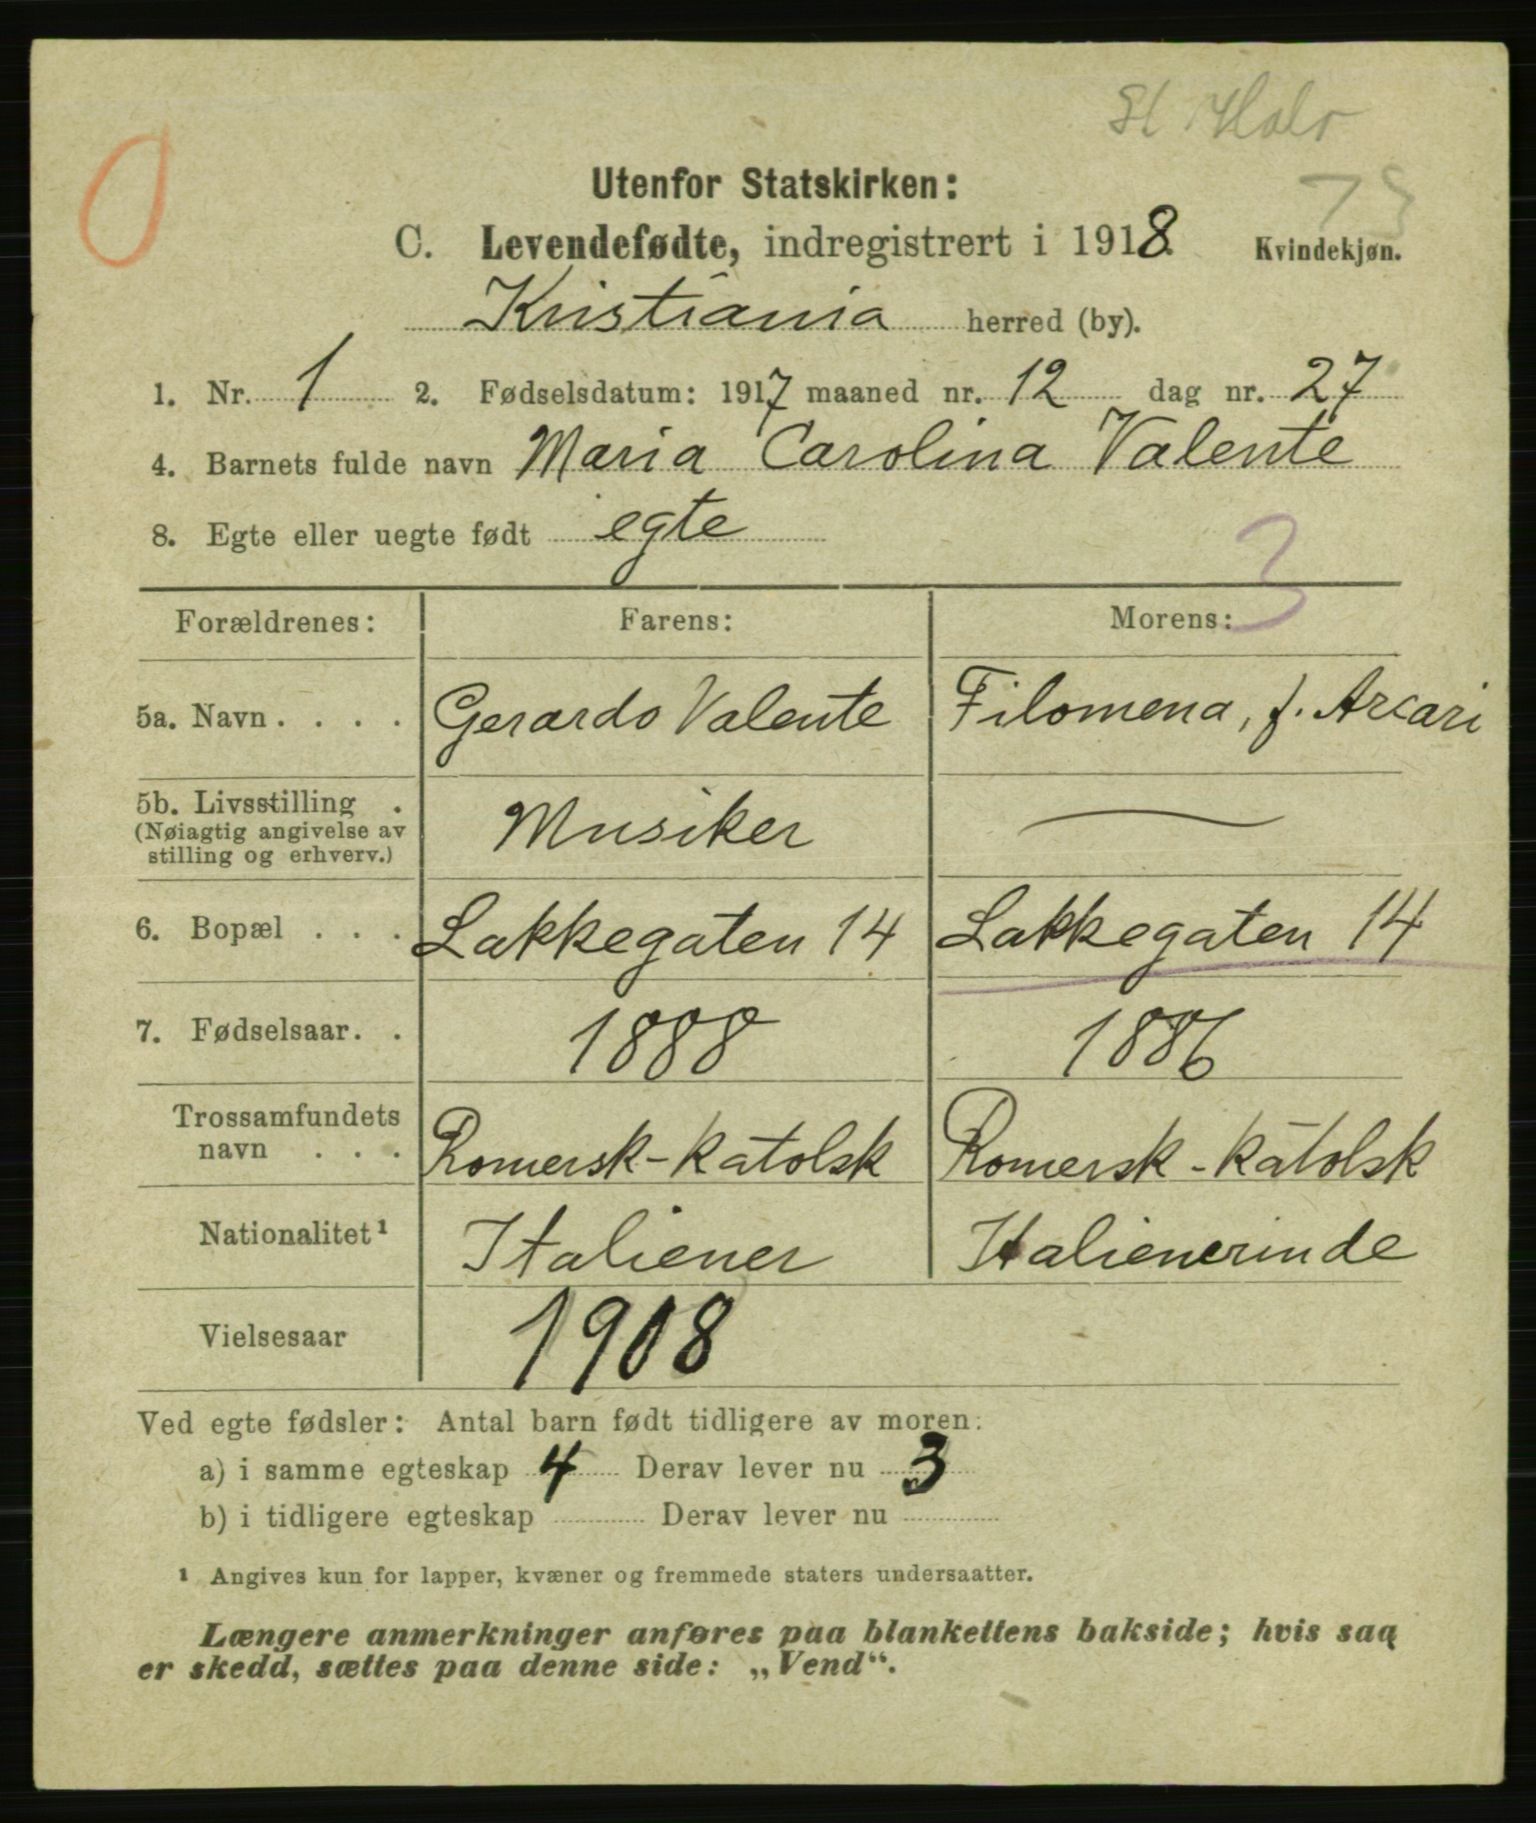 St Halv
Utenfor Statskirken:
73
C. Levendefødte, indregistrert i 1918. Kvindekjøn.
Kristiania herred (by).
1. Nr. 1 2. Fødselsdatum: 1917 maaned nr. 12 dag nr. 27
4. Barnets fulde navn Maria Carolina Valente
8. Egte eller uegte født egte
3
Forældrenes: Farens: Morens:
5a. Navn . . . . Gerardo Valente Filomena, f. Arcari
5b. Livsstilling . Musiker —
(Nøiagtig angivelse av
stilling og erhverv.)
6. Bopæl . . . Lakkegaten 14 Lakkegaten 14
7. Fødselsaar. . 1888 1886
Trossamfundets
navn . . . Romersk-katolsk Romersk-katolsk
Nationalitet¹ Italiener Italienerinde
Vielsesaar 1908
Ved egte fødsler: Antal barn født tidligere av moren:
a) i samme egteskap 4 Derav lever nu 3
b) i tidligere egteskap Derav lever nu
¹ Angives kun for lapper, kvæner og fremmede staters undersaatter.
Længere anmerkninger anføres paa blankettens bakside; hvis saa
er skedd, sættes paa denne side: „Vend“.